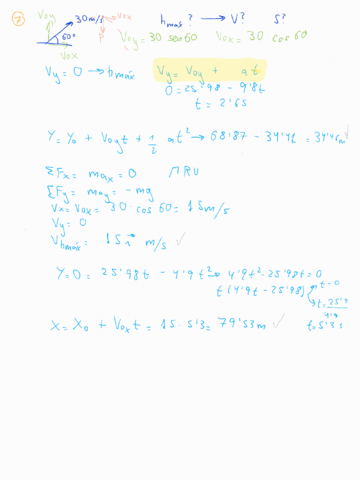 7 Voy 30 m/s Vox hmax? → V? S?
60° P Voy = 30 sen 60 Vox = 30 cos 60
Vox
Vy = 0 → hmáx Vy = Voy + at
0 = 25'98 - 9'8t
t = 2'65
Y = Y₀ + Voyt + 1/2 at² → 68'87 - 34'41 = 34'46m ✓
ΣFx = max = 0 MRU
ΣFy = may = -mg
Vx = Vox = 30 · cos 60 = 15 m/s
Vy = 0
Vhmáx = 15 i m/s ✓
Y = 0 = 25'98t - 4'9t² → 4'9t² - 25'98t = 0
t (4'9t - 25'98) t = 0
t = 25'9
4'9
X = X₀ + Voxt = 15 · 5'3 = 79'53m ✓ t = 5'3 s